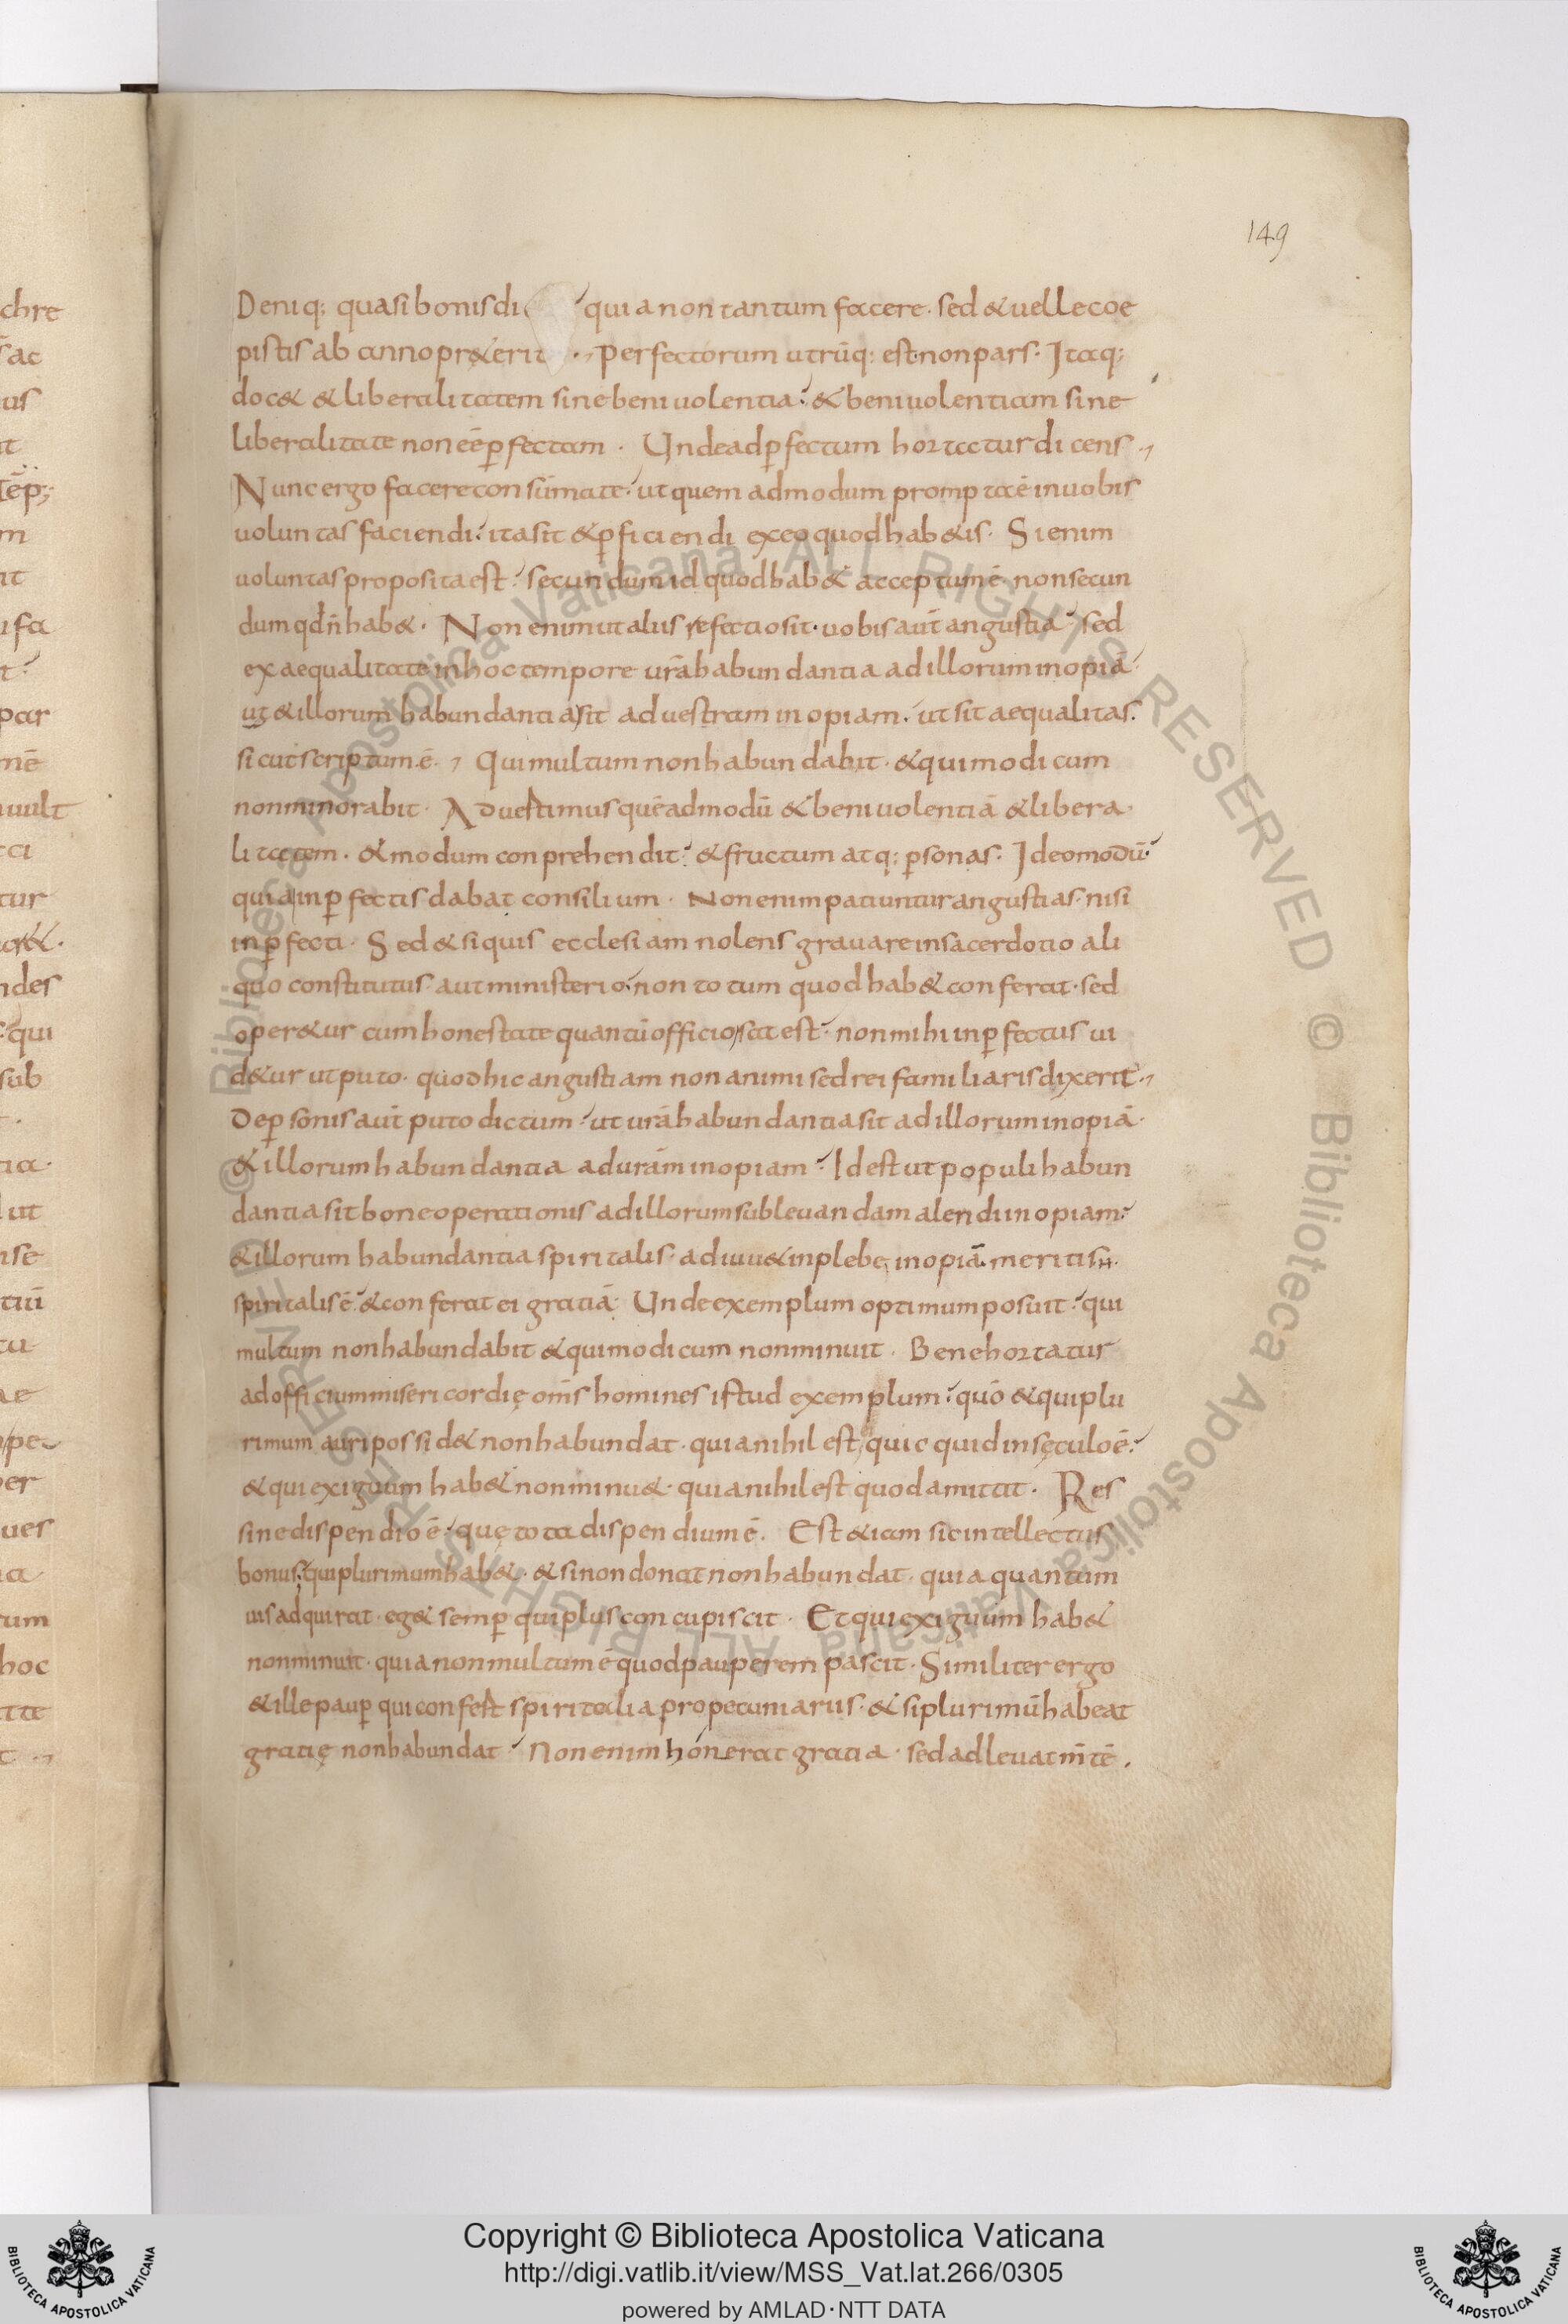 149
Deniq; quasi bonis di qui a non tantum facere. sed & uelle coe
pistis ab anno pr&erit. Perfectorum utrūq; est non pars. Itaq;
doc& & liberalitatem sine beniuolentia. & beniuolentiam sine
liberalitate non eē ꝑfectam. Unde ad ꝑfectum hortatur dicens.
Nunc ergo facere consūmate. ut quem admodum prompta ē in uobis
uoluntas faciendi. ita sit & ꝑficiendi ex eo quod hab&is. Si enim
uoluntas proposita est. secundum id quod hab& acceptum ē non secun
dum qd n̄ hab&. Non enim ut aliis refectio sit. uobis aut̄ angustia. sed
ex aequalitate in hoc tempore ur̄a habundantia ad illorum inopiā.
ut & illorum habundantia sit ad uestram inopiam. ut sit aequalitas.
sicut scriptum ē. Qui multum non habundabit. & qui modicum
non minorabit. Aduertimus quēadmodū & beniuolentiā & libera
litatem. & modum conprehendit. & fructum atq; ꝑsonas. Ideo modū.
quia inꝑfectis dabat consilium. Non enim patiuntur angustias. nisi
inꝑfecti. Sed & si quis ecclesiam nolens grauare in sacerdotio ali
quo constitutus aut ministerio. non totum quod hab& conferat. sed
oper&ur cum honestate quantū officio sat est. non mihi inꝑfectus ui
d&ur ut puto. quod hic angustiam non animi sed rei familiaris dixerit.
De ꝑsonis aut̄ puto dictum. ut ur̄a habundantia sit ad illorum inopiā.
& illorum habundantia ad ur̄am inopiam. Id est ut populi habun
dantia sit bone operationis ad illorum subleuandam alendi inopiam.
& illorum habundantia spiritalis. adiuu& in plebe inopiā meriti
spiritalis ē. & conferat ei gratiā. Unde exemplum optimum posuit. qui
multum non habundabit & qui modicum non minuit. Bene hortatur
ad officium misericordię om̄s homines istud exemplum. quō & qui plu
rimum auri possid& non habundat. quia nihil est quicquid in sęculo ē.
& qui exiguum hab& non minu&. quia nihil est quod amittit. Res
sine dispendio ē. quę tota dispendium ē. Est & iam sic intellectus
bonus. qui plurimum hab&. & si non donat non habundat. quia quantum
uis adquirat. eg& semꝑ qui plus concupiscit. Et qui exiguum hab&
non minuit. quia non multum ē quod pauperem pascit. Similiter ergo
& ille pauꝑ qui confert spiritalia pro pecuniariis. & si plurimū habeat
gratię non habundat. Non enim honerat gratia. sed adleuat m̄tē.
Copyright © Biblioteca Apostolica Vaticana
http://digi.vatlib.it/view/MSS_Vat.lat.266/0305
powered by AMLAD·NTT DATA